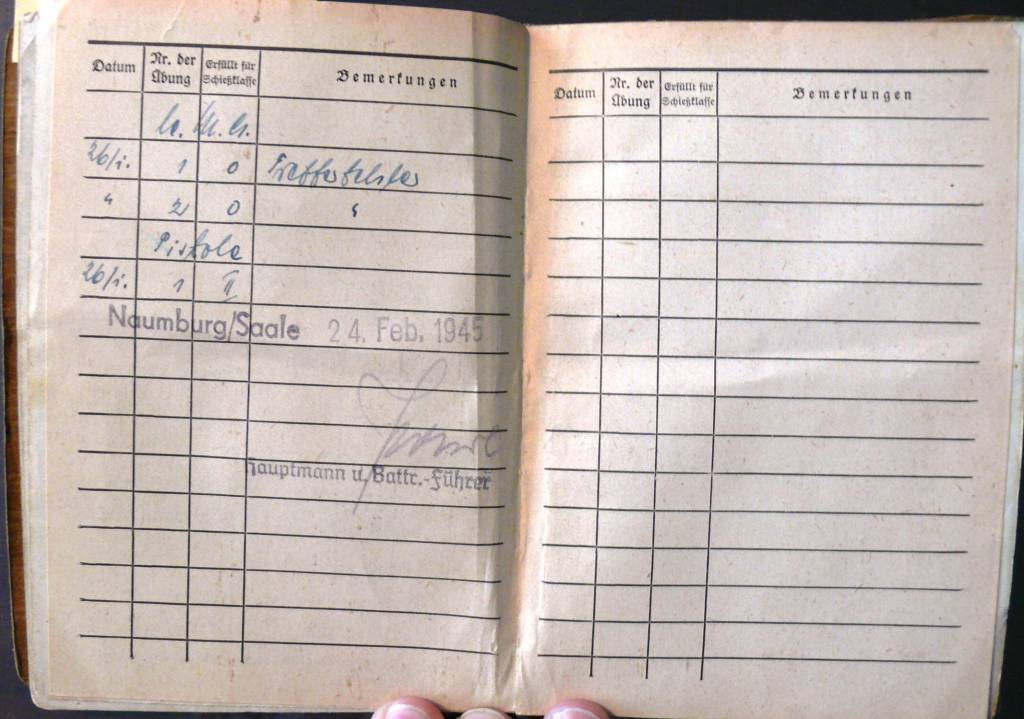 Datum Nr. der Übung Erfüllt für Schießklasse Bemerkungen
M. G.
26/1. 1 0
" 2 0 "
Pistole
26/1. 1 II
Naumburg/Saale 24. Feb. 1945
Hauptmann u. Battr.-Führer
Datum Nr. der Übung Erfüllt für Schießklasse Bemerkungen